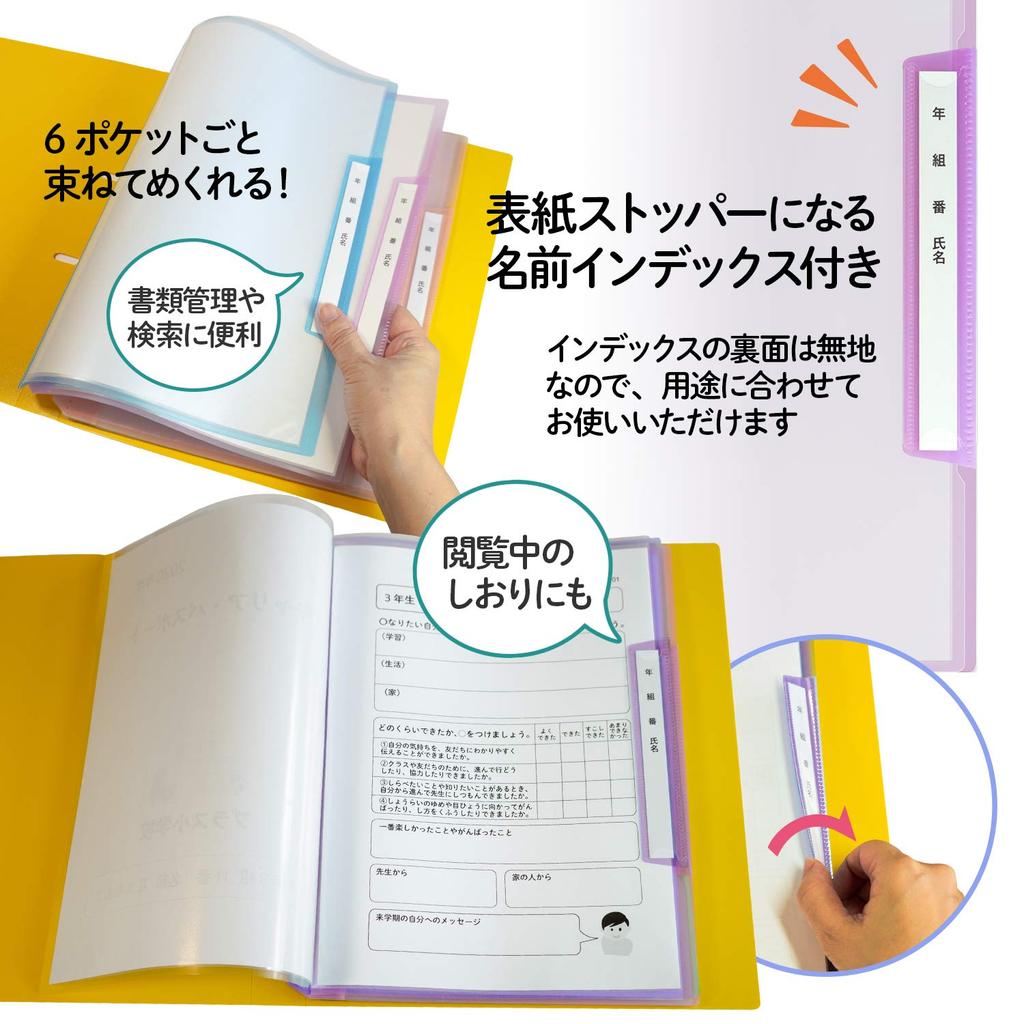 6 ポケットごと
束ねてめくれる!
書類管理や
検索に便利
年 組 番 氏名
年 組 番 氏名
年 組 番 氏名
表紙ストッパーになる
名前インデックス付き
インデックスの裏面は無地
なので、用途に合わせて
お使いいただけます
年 組 番 氏名
閲覧中の
しおりにも
3年生
○なりたい自
(学習)
(生活)
(家)
どのくらいできたか、○をつけましょう。
よく
できた
できた
すこし
できた
あまり
できな
かった
①自分の気持ちを、友だちにわかりやすく
伝えることができましたか。
②クラスや友だちのために、進んで行どう
したり、協力したりできましたか。
③しらべたいことや知りたいことがあるとき、
自分から進んで先生にしつもんできましたか。
④しょうらいのゆめや目ひょうに向かってがん
ばったり、し方をくふうしたりできましたか。
一番楽しかったことやがんばったこと
先生から
家の人から
来学期の自分へのメッセージ
年 組 番 氏名
年 組 番